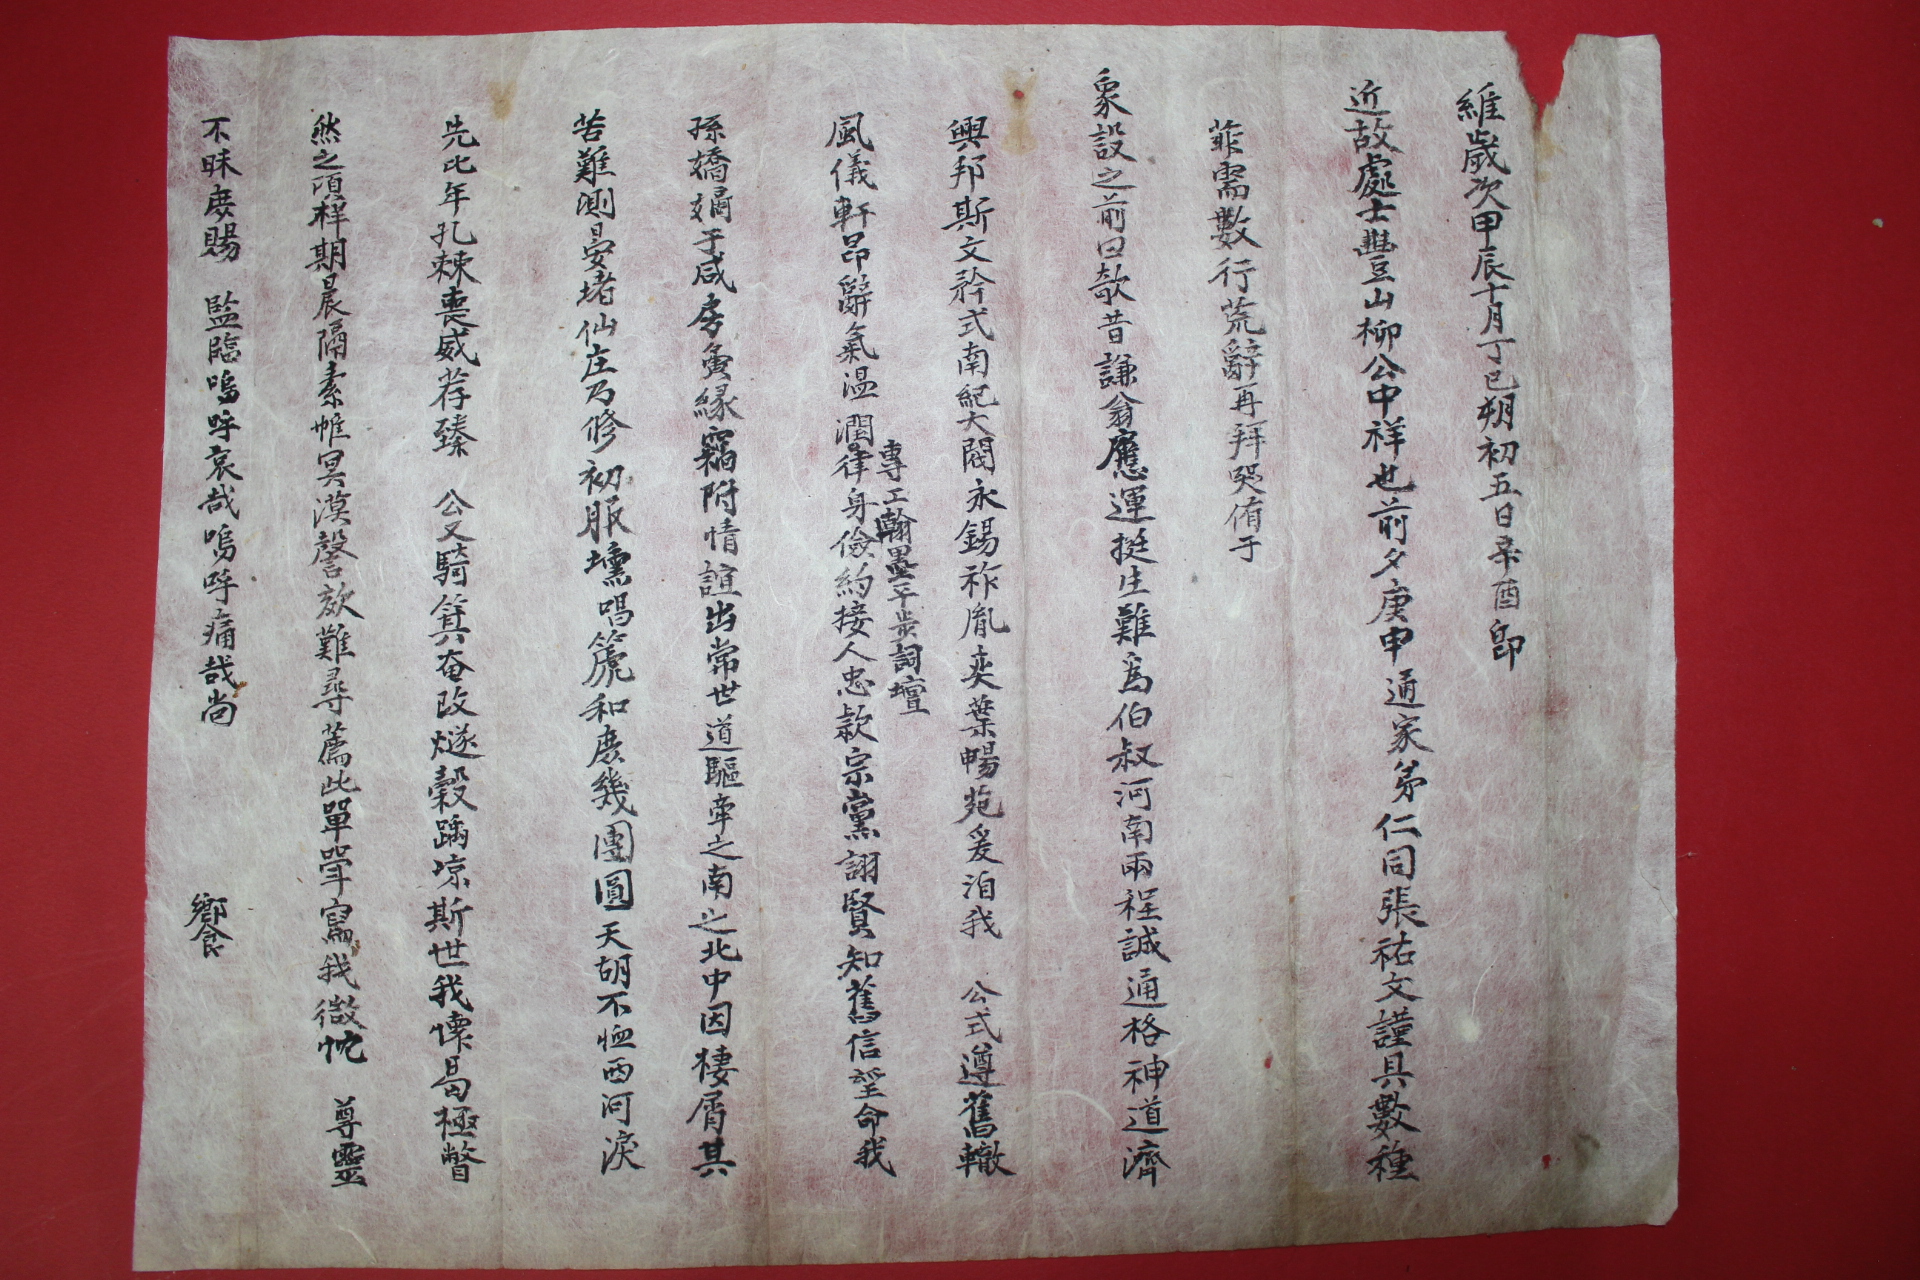 維歲次甲辰十月丁巳朔初五日辛酉卽
近故處士豊山柳公中祥也前夕庚申通家弟仁同張祐文謹具數種
菲需數行荒辭再拜哭侑于
象設之前曰欹昔謙翁應運挺生難爲伯叔河南兩程誠通格神道濟
興邦斯文矜式南紀大閥永錫祚胤奕葉暢苑爰洎我 公式遵舊轍
專工翰墨平步詞壇
風儀軒昂辭氣温潤律身儉約接人忠款宗黨詡賢知舊信望命我
孫嬌媚于咸房夤緣竊附情誼出常世道驅牽之南之北中因棲屑其
苦難測晏堵仙庄乃修初服壎唱箎和庶幾團圓天胡不恤西河淚
先比年孔棘喪威荐臻 公又騎箕奄改燧穀踽凉斯世我懷曷極瞥
然之頃祥期晨隔素帷冥漠謦欬難尋薦此單斝寫我微忱 尊靈
不昧庶賜 監臨嗚呼哀哉嗚呼痛哉尙
饗